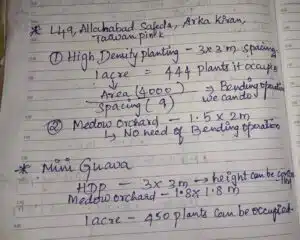 * L49, Allahabad Safeda, Arka Kiran,
Taiwan pink
① High Density planting - 3x3m spacing
1 acre = 444 plants it occupies
Area (4000) ⇒ Bending operation
Spacing (9) we can do
② Medow Orchard - 1.5 x 2m
↳ No need of Bending operation
* Mini Guava
HDP - 3x3m → height can be
Medow orchard - 1.8 x 1.8 m
1 acre - 450 plants can be occupied.